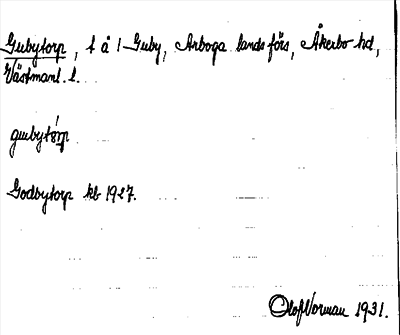 Gubytorp, t å /Guby, Arboga landsförs, Åkerbo hd,
Västmanl. l.
gubytórp
Godbytorp kb 1927.
Olof Norman 1931.